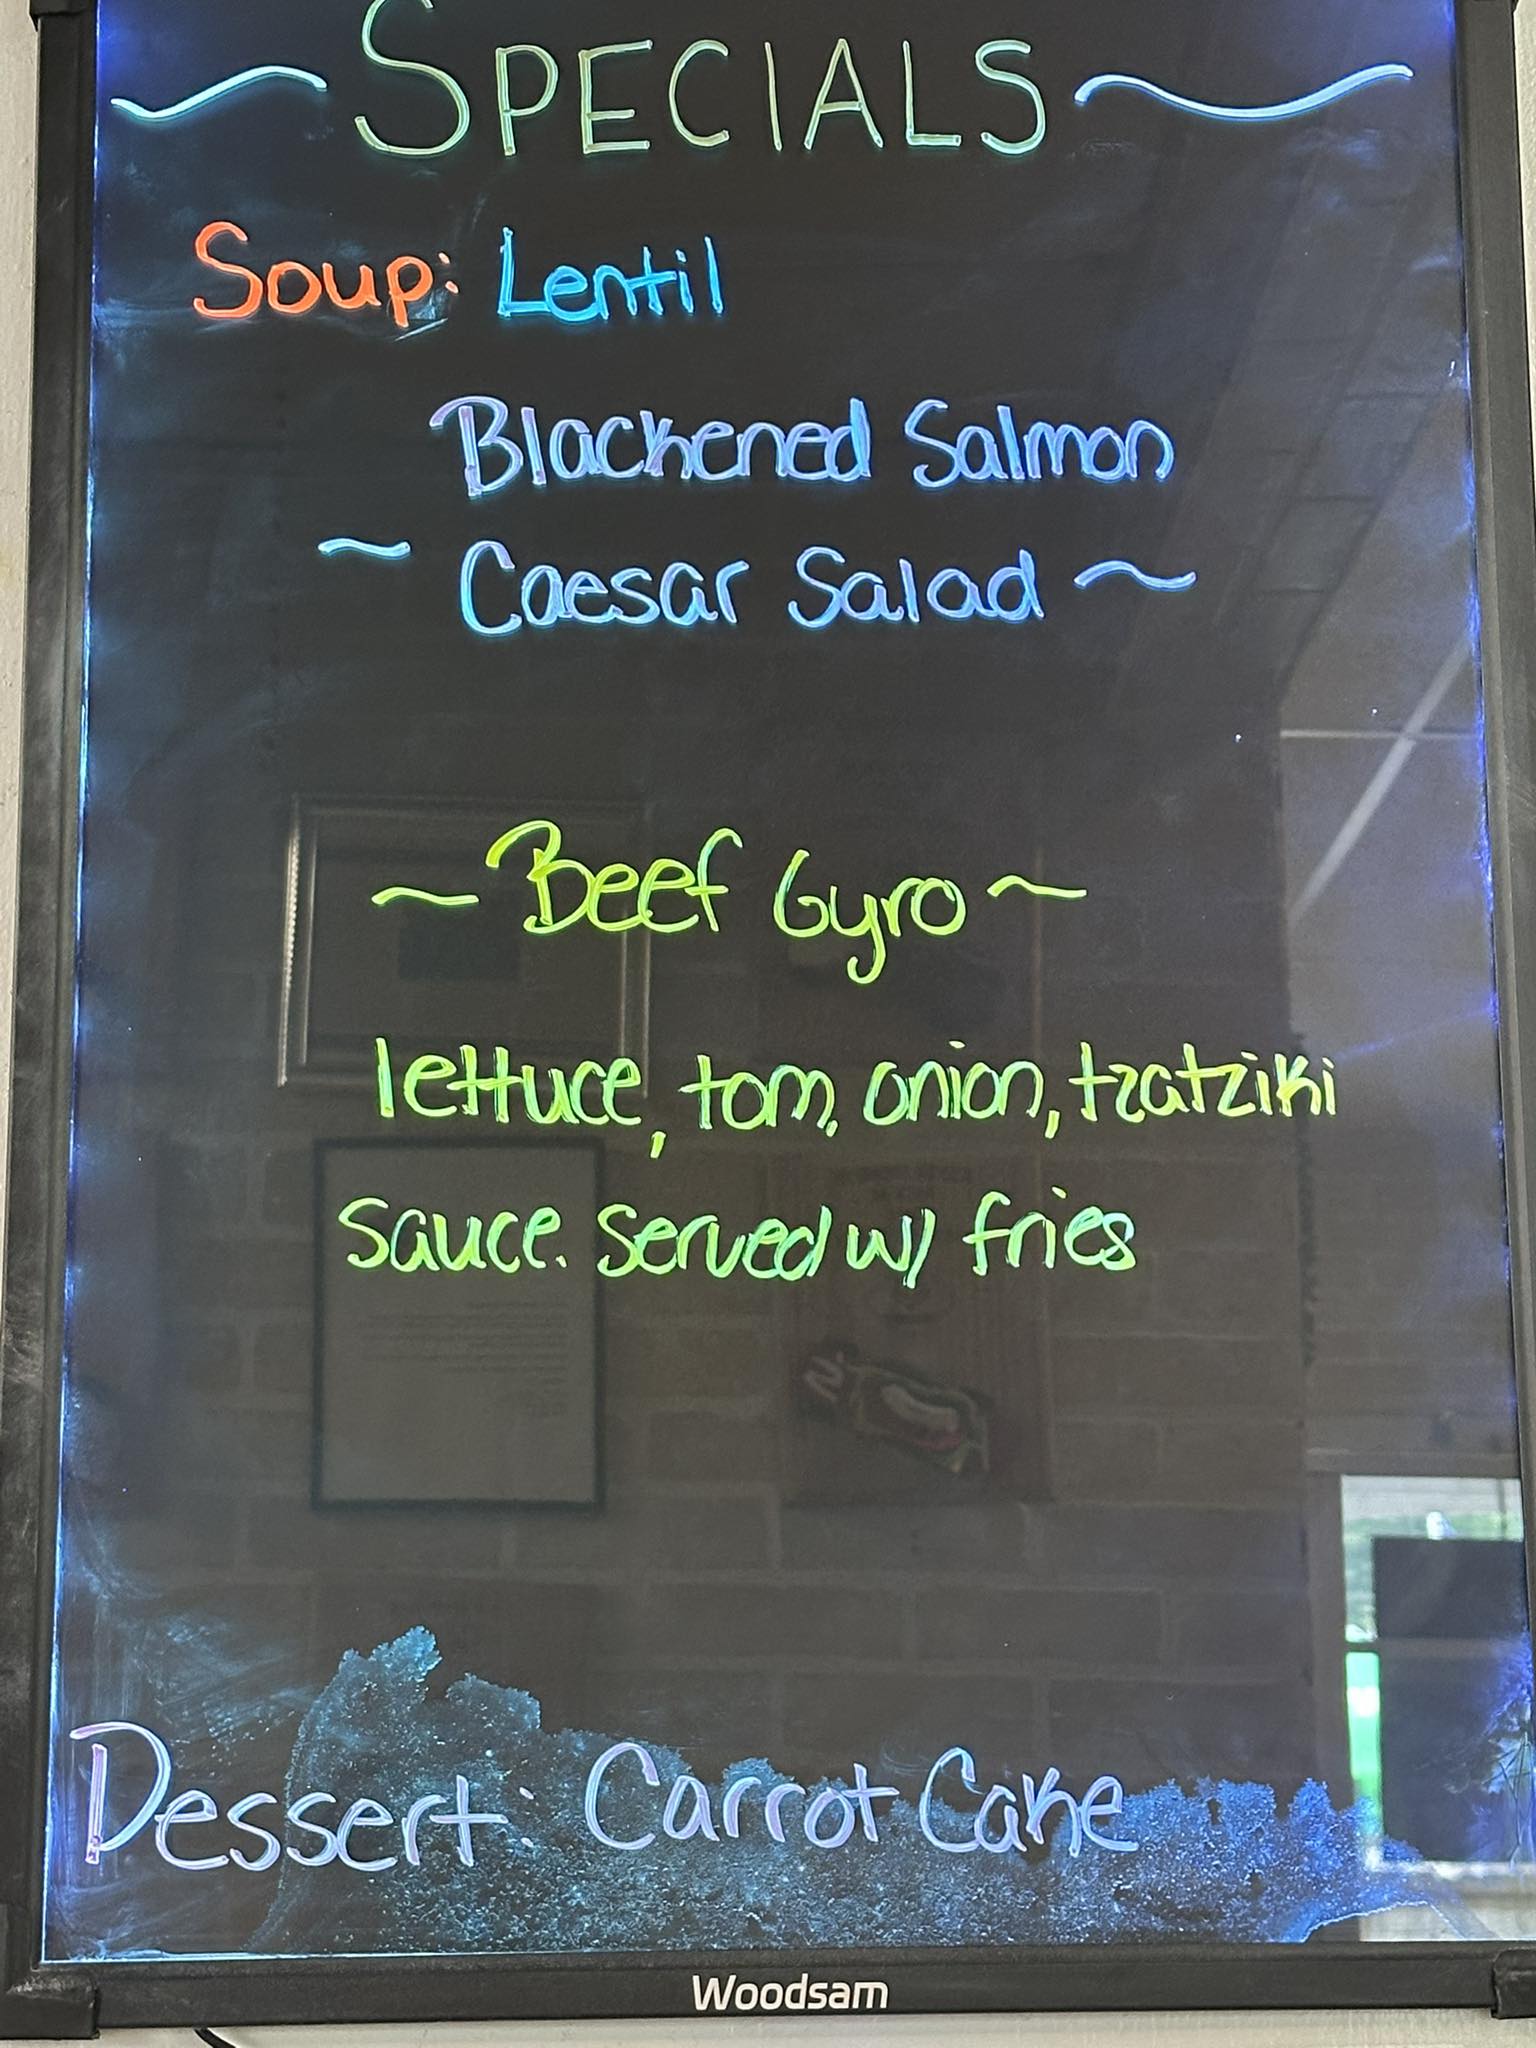 ~ SPECIALS ~
Soup: Lentil
Blackened Salmon
~ Caesar Salad ~
~ Beef Gyro ~
lettuce, tom, onion, tzatziki
sauce. served w/ fries
Dessert: Carrot Cake
Woodsam